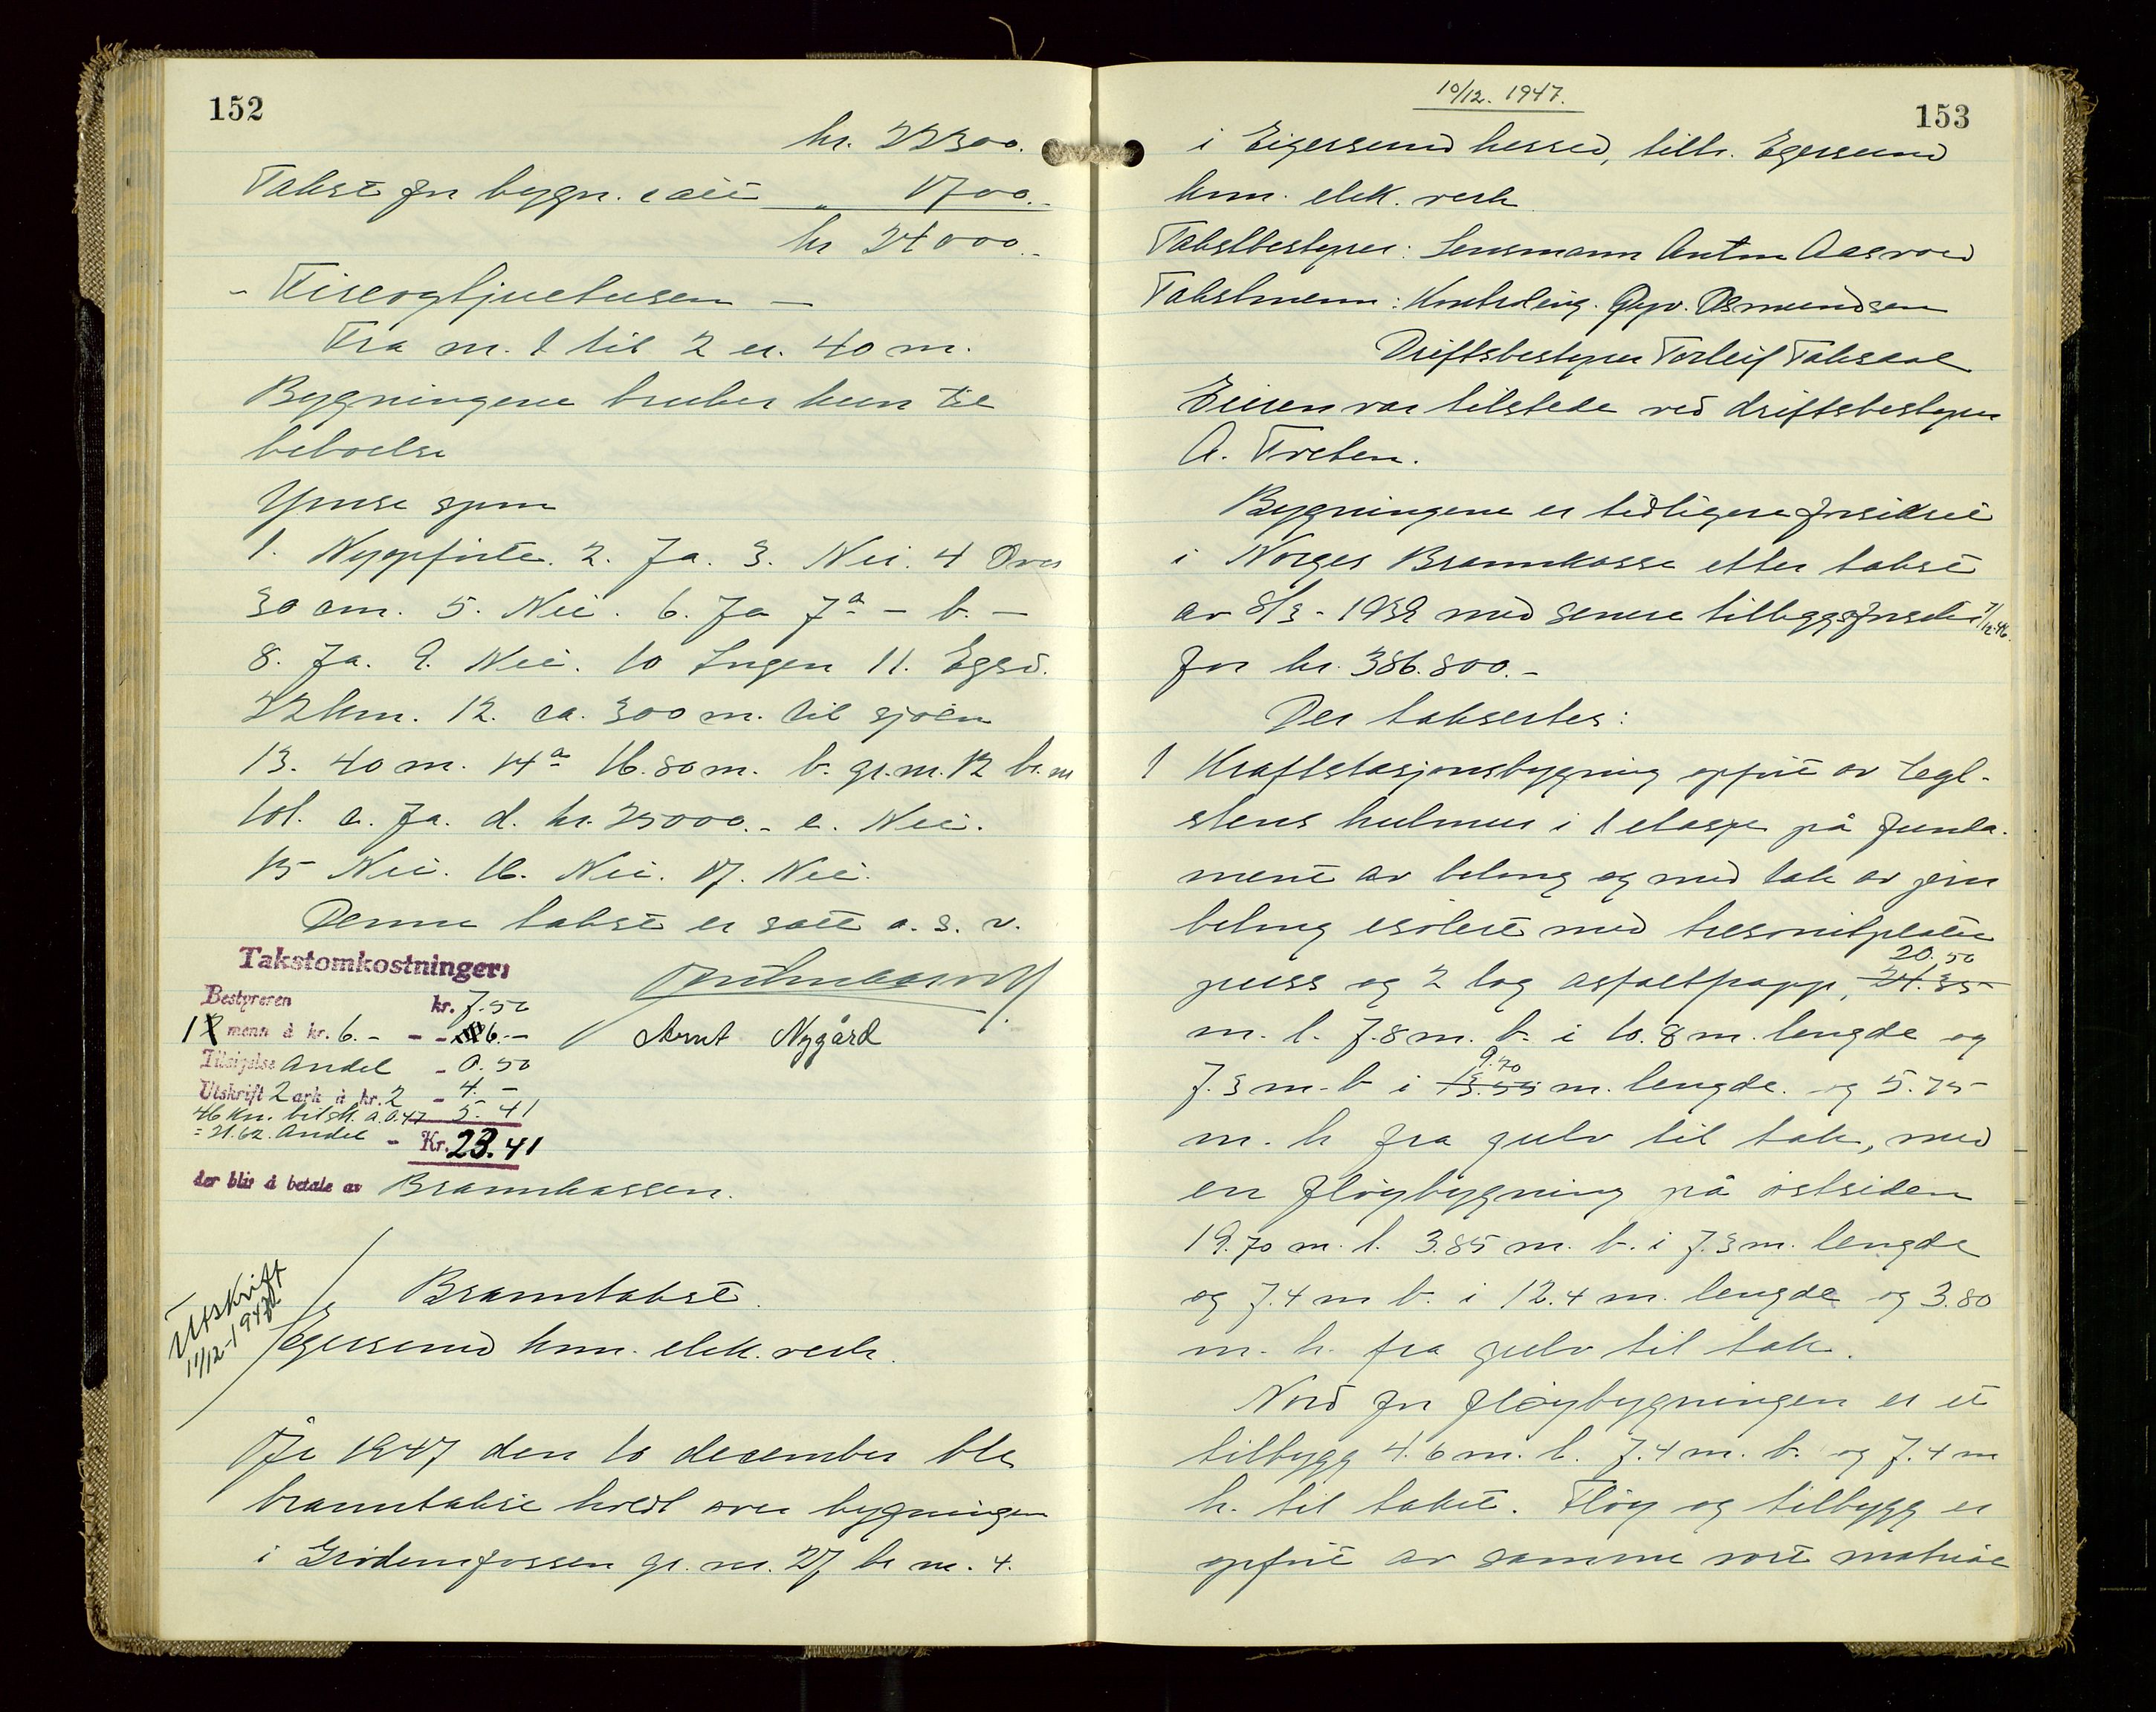 152
kr. 22300.
Takst for bygn. i alt " 1700.-
kr 24000.-
- Tireogtjuetusen -
Fra nr. 1 til 2 er. 40 m.
Bygningene brukes kun til
beboelse
Ymse spm
1. Nyoppførte. 2. Ja. 3. Nei. 4 Over
30 cm. 5. Nei. 6. Ja 7a - b. -
8. Ja. 9. Nei. 10 Ingen 11. Egsd.
22 km. 12. ca. 300 m. til sjøen
13. 40 m. 14a 16.80 m. b. gr.nr. 12 br.nr
101. c. Ja. d. kr. 25000.- e. Nei.
15 Nei. 16. Nei. 17. Nei.
Denne takst er satt o. s. v.
Takstomkostninger:
Bestyreren kr. 7.50
1 menn à kr. 6.- - - 6.-
Arnt Nygård
Tilsigelse Andel - 0.50
Utskrift 2 ark à kr. 2 - 4.-
46 km. bilsk. a 0.47 5.41
= 21.62. Andel - Kr. 23.41
der blir å betale av Brannkassen.
Utskrift
11/12-1947
Branntakst.
Egersund kom. elek. verk.
År 1947 den 10 december ble
branntakst holdt over bygningen
i Grødemfossen gr. nr. 27, br nr. 4.
10/12. 1947.
153
i Eigersund herred, tilh. Egersund
kom. elek. verk
Takstbestyrer: Lensmann Anton Aasvold
Takstmenn: Kontroling. Osmundsen
Driftsbestyrer Torleif Taksdal
Eieren var tilstede ved driftsbestyrer
A. Treten.
Bygningene er tidligere forsikret
i Norges Brannkasse etter takst
av 8/3 - 1939 med senere tilleggsforsikr 7/12-46.
for kr. 386.800.-
Der taksertes:
1 Kraftstasjonsbygning opført av tegl-
stens hulmur i 1 etasje på funda-
ment av betong og med tak av jern
betong isolert med tresonitplater
20.50
puss og 2 lag asfaltpapp, 24.35
m. l. 7.8 m. b. i 10.8 m. lengde og
9.70
7.3 m. b i 13.55 m. lengde. og 5.75
m. h fra gulv til tak, med
en fløybygning på østsiden
19.70 m. l. 3.85 m. b. i 7.3 m. lengde
og 7.4 m b. i 12.4 m. lengde og 3.80
m. h. fra gulv til tak.
Nord for fløybygningen er et
tilbygg 4.6 m. l. 7.4 m. b. og 7.4 m
h. til taket. Fløy og tilbygg er
opført av samme sort material